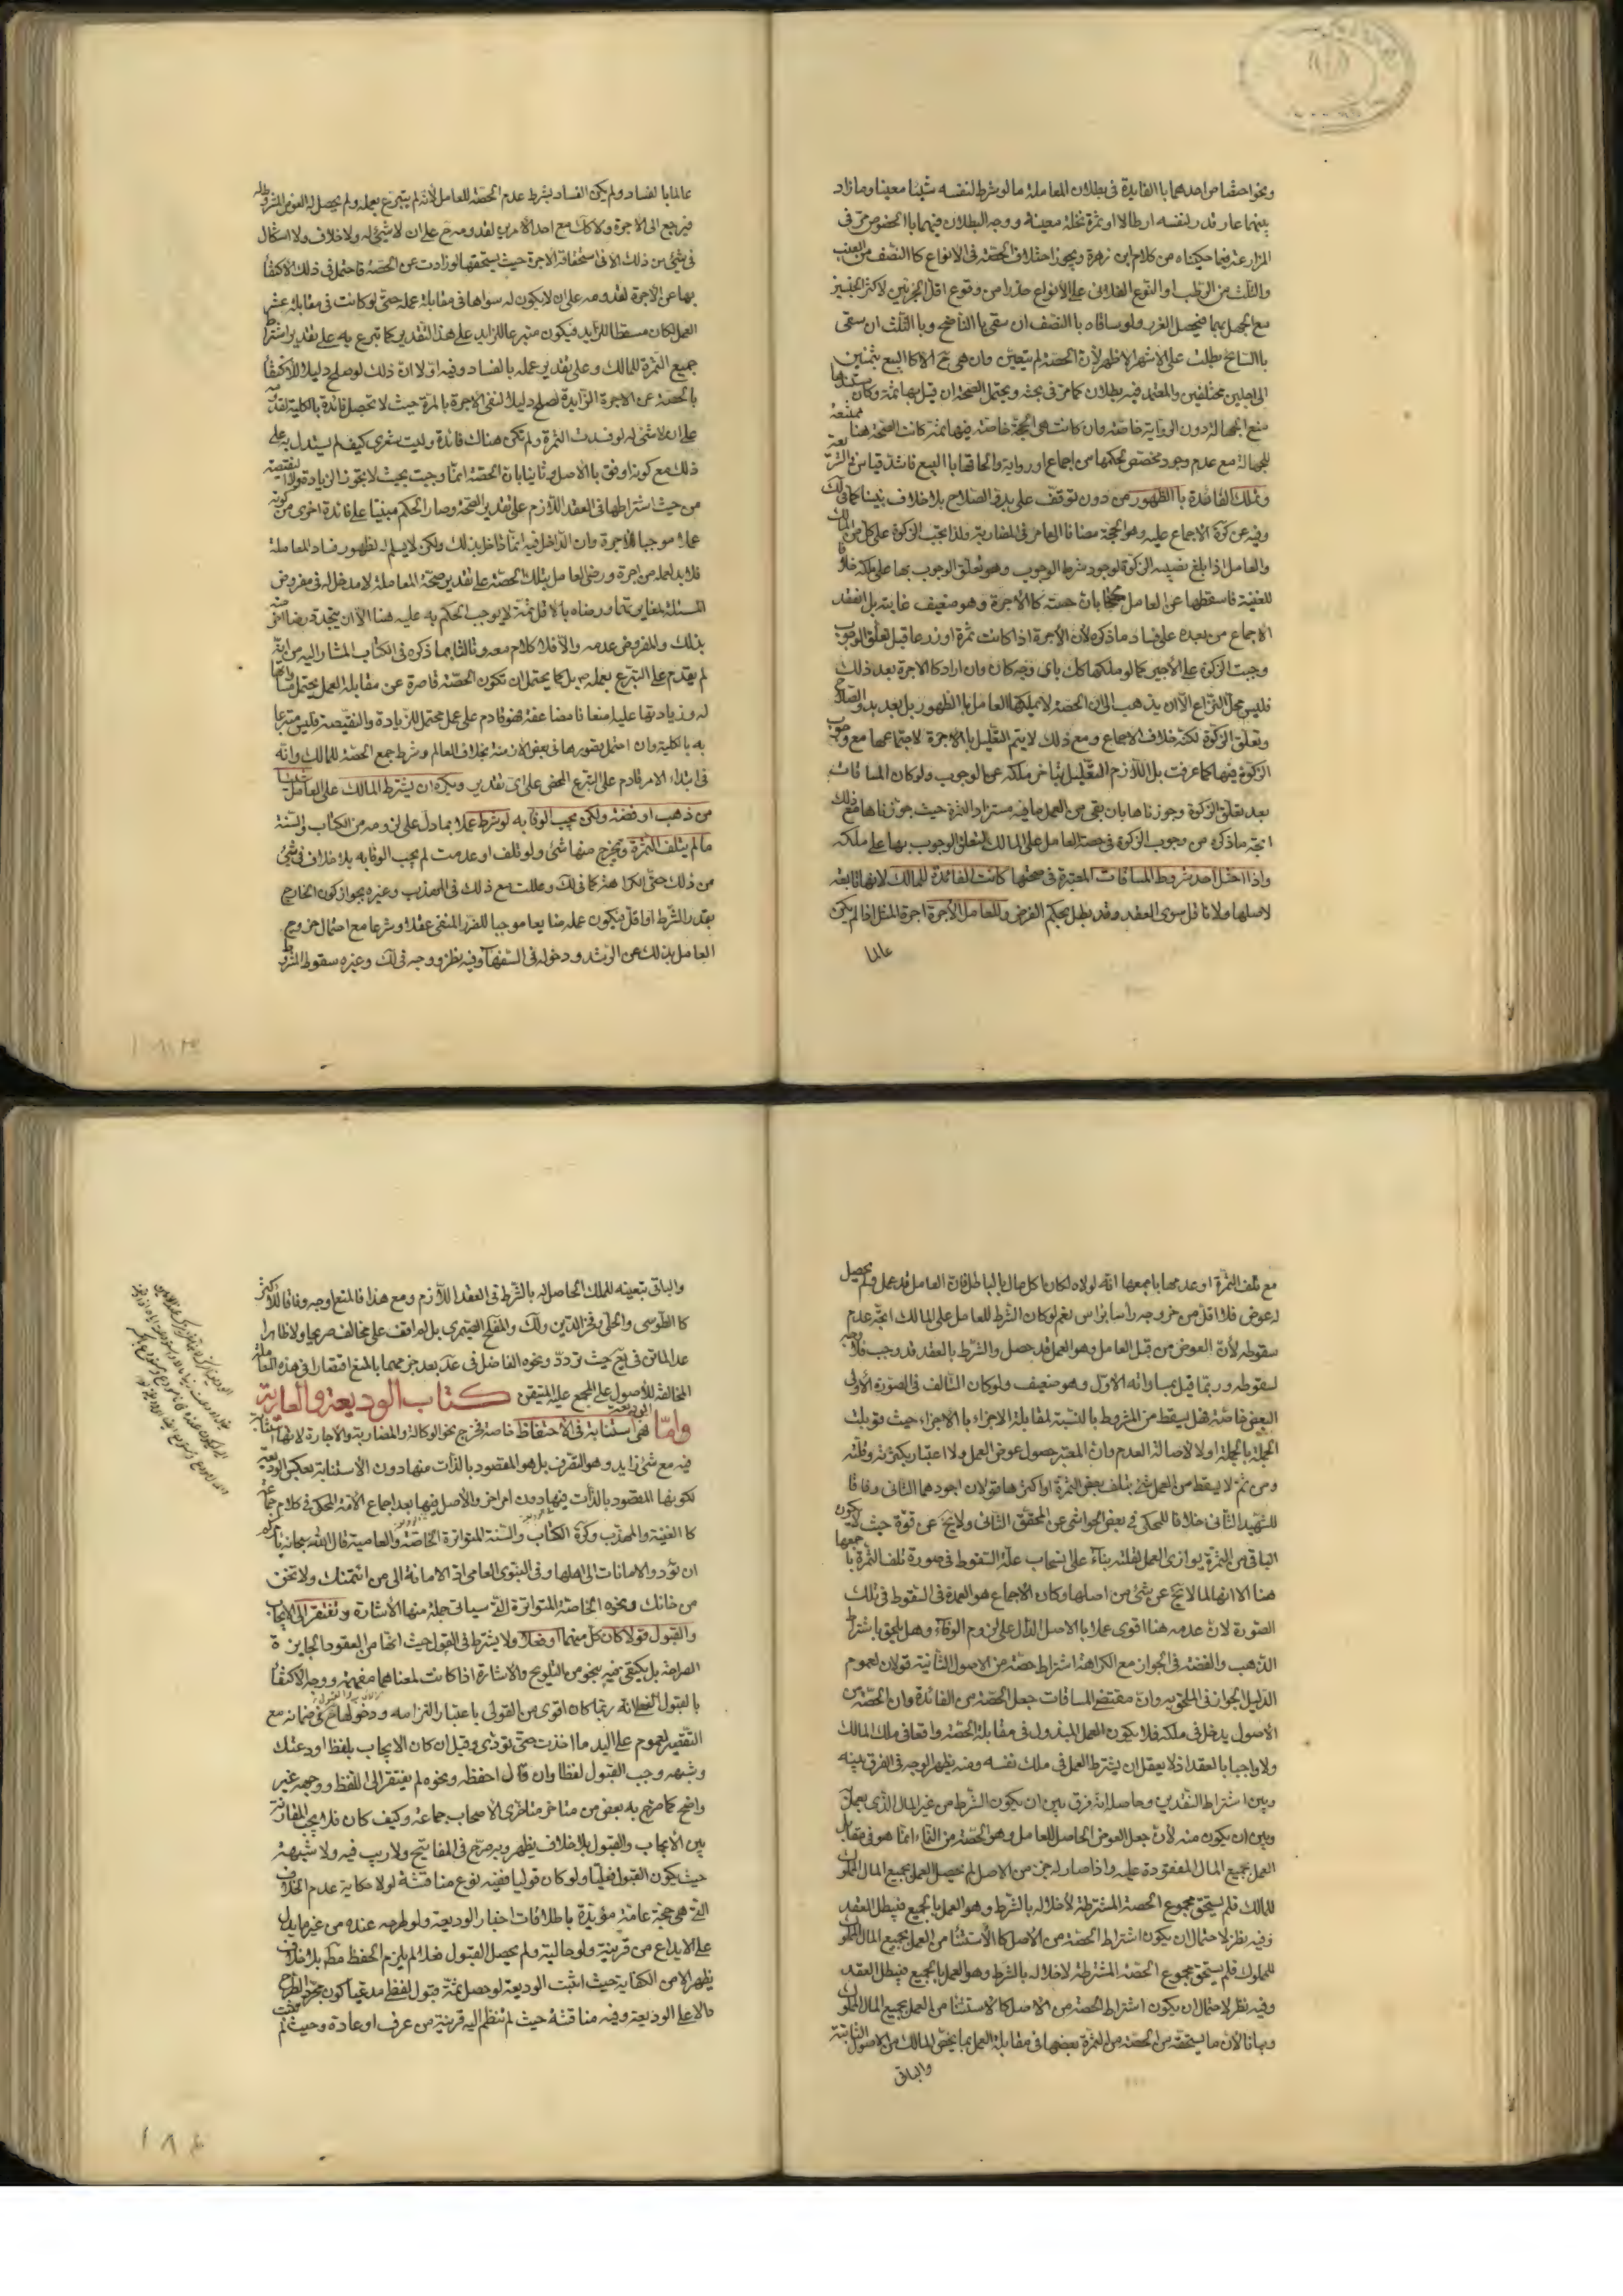 ونحو اختصاص احدهما بالفايدة في بطلان المعاملة ما لو شرط لنفسه شيئا معينا وما زاد
بينهما او قدر لنفسه ارطالا او ثمرة نخلة معينة ووجه البطلان فيهما بالخصوص مر في
المزارعة فيما حكيناه من كلام ابن زهرة ويجوز اختلاف الحصة في الانواع كالنصف من العنب
والثلث من الرطب او النوع الفلاني على الانواع حذرا من وقوع اقل الجزئين لاكثر الجنسين
مع الجهل بهما فيحصل الغرر ولو ساقاه بالنصف ان سقى بالناضح وبالثلث ان سقى
بالسايح بطلت على الاشهر الاظهر لان الحصة لم يتعين وان هي ح الا كالبيع بثمنين
الى اجلين مختلفين والمعتمد فيه بطلان كما مر في بحثه ويحتمل الصحة ان قيل بها ثمة وكان مستندها
منع الجهالة دون الرواية خاصة وان كانت هي الحجة خاصة فيها ثمة كانت الصحة هنا ممتنعة
للجهالة مع عدم وجود مخصص لحكمها من اجماع او رواية والحاقها بالبيع فاسد قياس في الشريعة
وتملك الفائدة بالظهور من دون توقف على بدو الصلاح بلا خلاف بيننا كما في لك
وفيه عن كرة الاجماع عليه وهو الحجة مضافا الى ما مر في المضاربة ولذا يجب الزكوة على كل من المالك
والعامل اذا بلغ نصيبه الزكوة لوجود شرط الوجوب وهو تعلق الوجوب بها على ملكه خلافا
للغنية فاسقطها عن العامل محتجا بان حصته كالاجرة وهو ضعيف غايته بل انعقد
الاجماع من بعده على فساد ما ذكره لان الاجرة اذا كانت ثمرة او زرعا قبل تعلق الوجوب
وجبت الزكوة على الاجير كما لو ملكها كك باي وجه كان وان اراد كالاجرة بعد ذلك
فليس محل النزاع الا ان يذهب الى ان الحصة لا يملكها العامل بالظهور بل بعد بدو الصلاح
وتعلق الزكوة لكنه خلاف الاجماع ومع ذلك لا يتم التعليل بالاجرة لاجتماعها مع وجوب
الزكوة فيها كما عرفت بل اللازم التعليل بتاخر ملكه عن الوجوب ولو كان المساقات
بعد تعلق الزكوة وجوزناها بان بقي من العمل ما فيه مستزاد الثمرة حيث جوزناها مع ذلك
اتجه ما ذكره من وجوب الزكوة في حصة العامل على المالك لتعلق الوجوب بها على ملكه
واذا اختل احد شروط المساقات المعتبرة في صحتها كانت الفائدة للمالك لانها تابعة
لاصلها ولا ناقل سوى العقد وقد بطل بحكم الفرض وللعامل الاجرة اجرة المثل اذا لم يكن
عالما
عالما بالفساد ولم يكن الفساد بشرط عدم الحصة للعامل لانه لم يتبرع بعمله ولم يحصل له العوض المشروط له
فيرجع الى الاجرة ولا كك مع احد الامرين لقدومه ح على ان لا شيئ له ولا خلاف ولا اشكال
في شيئ من ذلك الا في استحقاق الاجرة حيث يستحقها لو زادت عن الحصة فاحتمل في ذلك الاكتفاء
بها عن الاجرة لقدومه على ان لا يكون له سواها في مقابلة عمله حتى لو كانت في مقابلة عشر
العمل لكان مسقطا للزايد فيكون متبرعا للزايد على هذا التقدير كما تبرع به على تقدير اشتراط
جميع الثمرة للمالك وعلى تقدير عمله بالفساد وفيه اولا ان ذلك لو صلح دليلا للاكتفاء
بالحصة عن الاجرة الزايدة لصلح دليلا لنفي الاجرة بالمرة حيث لا تحصل فائدة بالكلية لقدومه
على ان لا شيئ له لو فسدت الثمرة ولم تكن هناك فائدة وليت شعري كيف لم يستدل به على
ذلك مع كونه اوفق بالاصل وثانيا بان الحصة انما وجبت بحيث لا يجوز الزيادة ولا النقيصة
من حيث اشتراطها في العقد اللازم على تقدير الصحة وصار الحكم مبنيا على فائدة اخرى من كونه
عملا موجبا للاجرة وان الداخل فيه انما داخل بذلك ولكن لا يسلم له لظهور فساد المعاملة
فلا بد لعمله من اجرة ورضى العامل بتلك الحصة على تقدير صحة المعاملة لا مدخل له في مفروض
المسئلة لمغايرتها ورضاه بالاقل ثمة لا يوجب الحكم به عليه هنا الا ان يتجدد رضا اخر منه
بذلك والمفروض عدمه والا فلا كلام معه وثالثا بما ذكره في الكتاب المشار اليه من انه
لم يقدم على التبرع بعمله بل كما يحتمل ان تكون الحصة قاصرة عن مقابلة العمل يحتمل مساواتها
له وزيادتها عليه اضعافا مضاعفة فهو قادم على عمل محتمل للزيادة والنقيصة فليس متبرعا
به بالكلية وان احتمل قصورها في بعض الازمنة بخلاف العالم وشرط جمع الحصة للمالك وانه
في ابتداء الامر قادم على التبرع المحض على اي تقدير ويكره ان يشترط المالك على العامل شيئا
من ذهب او فضة ولكن يجب الوفا به لو شرط عملا بما دل على لزومه من الكتاب والسنة
ما لم يتلف الثمرة ويخرج منها شئ ولو تلف او عدمت لم يجب الوفا به بلا خلاف في شئ
من ذلك حتى الكراهة كما في لك وعللت مع ذلك في المهذب وغيره بجواز كون الخارج
بقدر الشرط او اقل فيكون عمله ضايعا موجبا للضرر المنفي عقلا وشرعا مع احتمال خروج
العامل بذلك عن الرشد ودخوله في السفهاء وفيه نظر ووجه في لك وغيره سقوط الشرط
مع تلف الثمرة او عدمها باجمعها انه لولاه لكان اكل مال بالباطل فان العامل قد عمل ولم يحصل
له عوض فلا اقل من خروجه راسا براس نعم لو كان الشرط للعامل على المالك اتجه عدم
سقوطه لان العوض من قبل العامل وهو العمل قد حصل والشرط بالعقد قد وجب فلا وجه
لسقوطه وربما قيل بمساواته الاول وهو ضعيف ولو كان التالف في الصورة الاولى
البعض خاصة فهل يسقط من المشروط بالنسبة لمقابلة الاجزاء بالاجزاء حيث قوبلت
الجملة بالجملة او لا لاصالة العدم وان المعتبر حصول عوض العمل ولا اعتبار بكثرته وقلته
ومن ثم لا يسقط من العمل شئ بتلف بعض الثمرة او اكثرها قولان اجودهما الثاني وفاقا
للشهيد الثاني خلافا للمحكي في بعض الحواشي عن المحقق الثاني ولا يخ عن قوة حيث لا يكون
الباقي من الثمرة يوازي العمل لقلته بناء على انسحاب علة السقوط في صورة تلف الثمرة باجمعها
هنا الا انها لما لا تخ عن شئ من اصلها وكان الاجماع هو العمدة في السقوط في تلك
الصورة لان عدمه هنا اقوى عملا بالاصل الدال على لزوم الوفاء وهل يلحق باشتراط
الذهب والفضة في الجواز مع الكراهة اشتراط حصة من الاصول الثانية قولان لعموم
الدليل الجواز في الملحق به وان مقتضى المساقات جعل الحصة من الفائدة وان الحصة من
الاصول يدخل في ملكه فلا يكون العمل المبذول في مقابلة الحصة واقعا في ملك المالك
ولا واجبا بالعقد اذ لا يعقل ان يشترط العمل في ملك نفسه ومنه يظهر الوجه في الفرق بينه
وبين اشتراط النقدين وحاصله انه فرق بين ان يكون الشرط من غير المال الذي يعمل
وبين ان يكون منه لان جعل العوض الحاصل للعامل وهو الحصة من النماء انما هو في مقابل
العمل بجميع المال المعقودة عليه واذا صار له جزء من الاصل لم يحصل العمل بجميع المال المملوك
للمالك فلم يستحق مجموع الحصة المشترطة لاخلاله بالشرط وهو العمل بالجميع فيبطل العقد
وفيه نظر لاحتمال ان يكون اشتراط الحصة من الاصل كالاستثناء من العمل بجميع المال المملوك
للمملوك فلم يستحق مجموع الحصة المشترطة لاخلاله بالشرط وهو العمل بالجميع فيبطل العقد
وفيه نظر لاحتمال ان يكون اشتراط الحصة من الاصل كالاستثناء من العمل بجميع المال المملوك
وبيانا لان ما يستحقه من الحصة من الثمرة بعضها في مقابلة العمل بما يخص المالك من الاصول الثابتة
والباقي
والباقي تبعيته للملك الحاصل له بالشرط في العقد اللازم ومع هذا فالمنع اوجه وفاقا للاكثر
كالطوسي والحلي وفخر الدين ولك والمفلح الصيمري بل لم اقف على مخالف صريحا ولا ظاهرا
عدا الماتن في يع حيث تردد ونحوه الفاضل في عد بعد جزمهما بالمنع اقتصارا في هذه المعاملة
المخالفة للاصول على المجمع عليه المتيقن كتاب الوديعة والعارية
واما الوديعة فهي استنابة في الاحتفاظ خاصة فخرج نحو الوكالة والمضاربة والاجارة لانها استنابة
فيه مع شئ زايد وهو التصرف بل هو المقصود بالذات منها دون الاستنابة بعكس الوديعة
لكونها المقصود بالذات فيها دون امر اخر والاصل فيها بعد اجماع الامة المحكي في كلام جماعة
كالغنية والمهذب وكرة الكتاب والسنة المتواترة الخاصة والعامية قال الله سبحانه يامركم
ان تؤدوا الامانات الى اهلها وفي النبوي العامي اد الامانة الى من ائتمنك ولا تخن
من خانك ونحوه الخاصة المتواترة التي سياتي جملة منها الاشارة وتفتقر الى الايجاب
والقبول قولا كان كل منهما او فعلا ولا يشترط في القول حيث انها من العقود الجايزة
الصراحة بل يكتفى فيه بنحو من التلويح والاشارة اذا كانت لمعناهما مفهمة ووجه الاكتفاء
بالقبول الفعلي انه ربما كان اقوى من القولي باعتبار التزامه ودخولها في ضمانه مع
التقصير لعموم على اليد ما اخذت حتى تؤدي وقيل ان كان الايجاب بلفظ اودعتك
وشبهه وجب القبول لفظا وان قال احفظه ونحوه لم يفتقر الى اللفظ ووجهه غير
واضح كما صرح به بعض من متاخر متاخري الاصحاب جماعة وكيف كان فلا يجب المقارنة
بين الايجاب والقبول بلا خلاف يظهر وبه صرح في المفاتيح ولا ريب فيه ولا شبهة
حيث يكون القبول فعليا ولو كان قوليا ففيه نوع مناقشة لولا حكاية عدم الخلاف
التي هي حجة عامة مؤيدة باطلاقات اخبار الوديعة ولو طرحه عنده من غير ما يدل
على الايداع من قرينة ولو حالية ولم يحصل القبول فعلا لم يلزم الحفظ مط بلا خلاف
يظهر الا من الكفاية حيث اثبت الوديعة لو حصل ثمة قبول لفظي مدعيا كون مجرد الطرح
دالا على الوديعة وفيه مناقشة حيث لم تنظم اليه قرينة من عرف او عادة وحيث لم تثبت